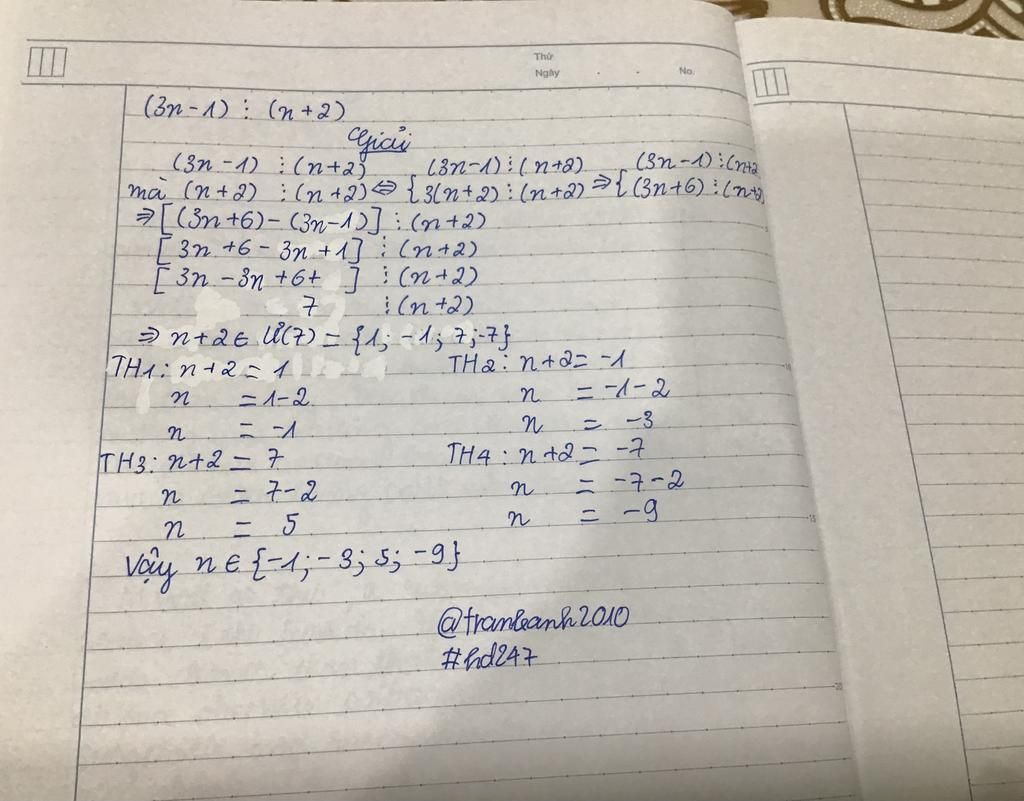 Thứ
Ngày . . No.
(3n-1) ⋮ (n+2)
Giải
(3n-1) ⋮ (n+2) (3n-1) ⋮ (n+2) (3n-1) ⋮ (n+2
mà (n+2) ⋮ (n+2) ⇔ { 3(n+2) ⋮ (n+2) ⇒ { (3n+6) ⋮ (n+2
⇒ [(3n+6) - (3n-1)] ⋮ (n+2)
[ 3n +6 - 3n +1] ⋮ (n+2)
[ 3n - 3n +6+ ] ⋮ (n+2)
7 ⋮ (n+2)
⇒ n+2 ∈ Ư(7) = {1; -1; 7; -7}
TH1: n+2 = 1 TH2: n+2 = -1
n = 1-2 n = -1-2
n = -1 n = -3
TH3: n+2 = 7 TH4: n+2 = -7
n = 7-2 n = -7-2
n = 5 n = -9
Vậy n ∈ {-1; -3; 5; -9}
@tranbanh2010
#hd247